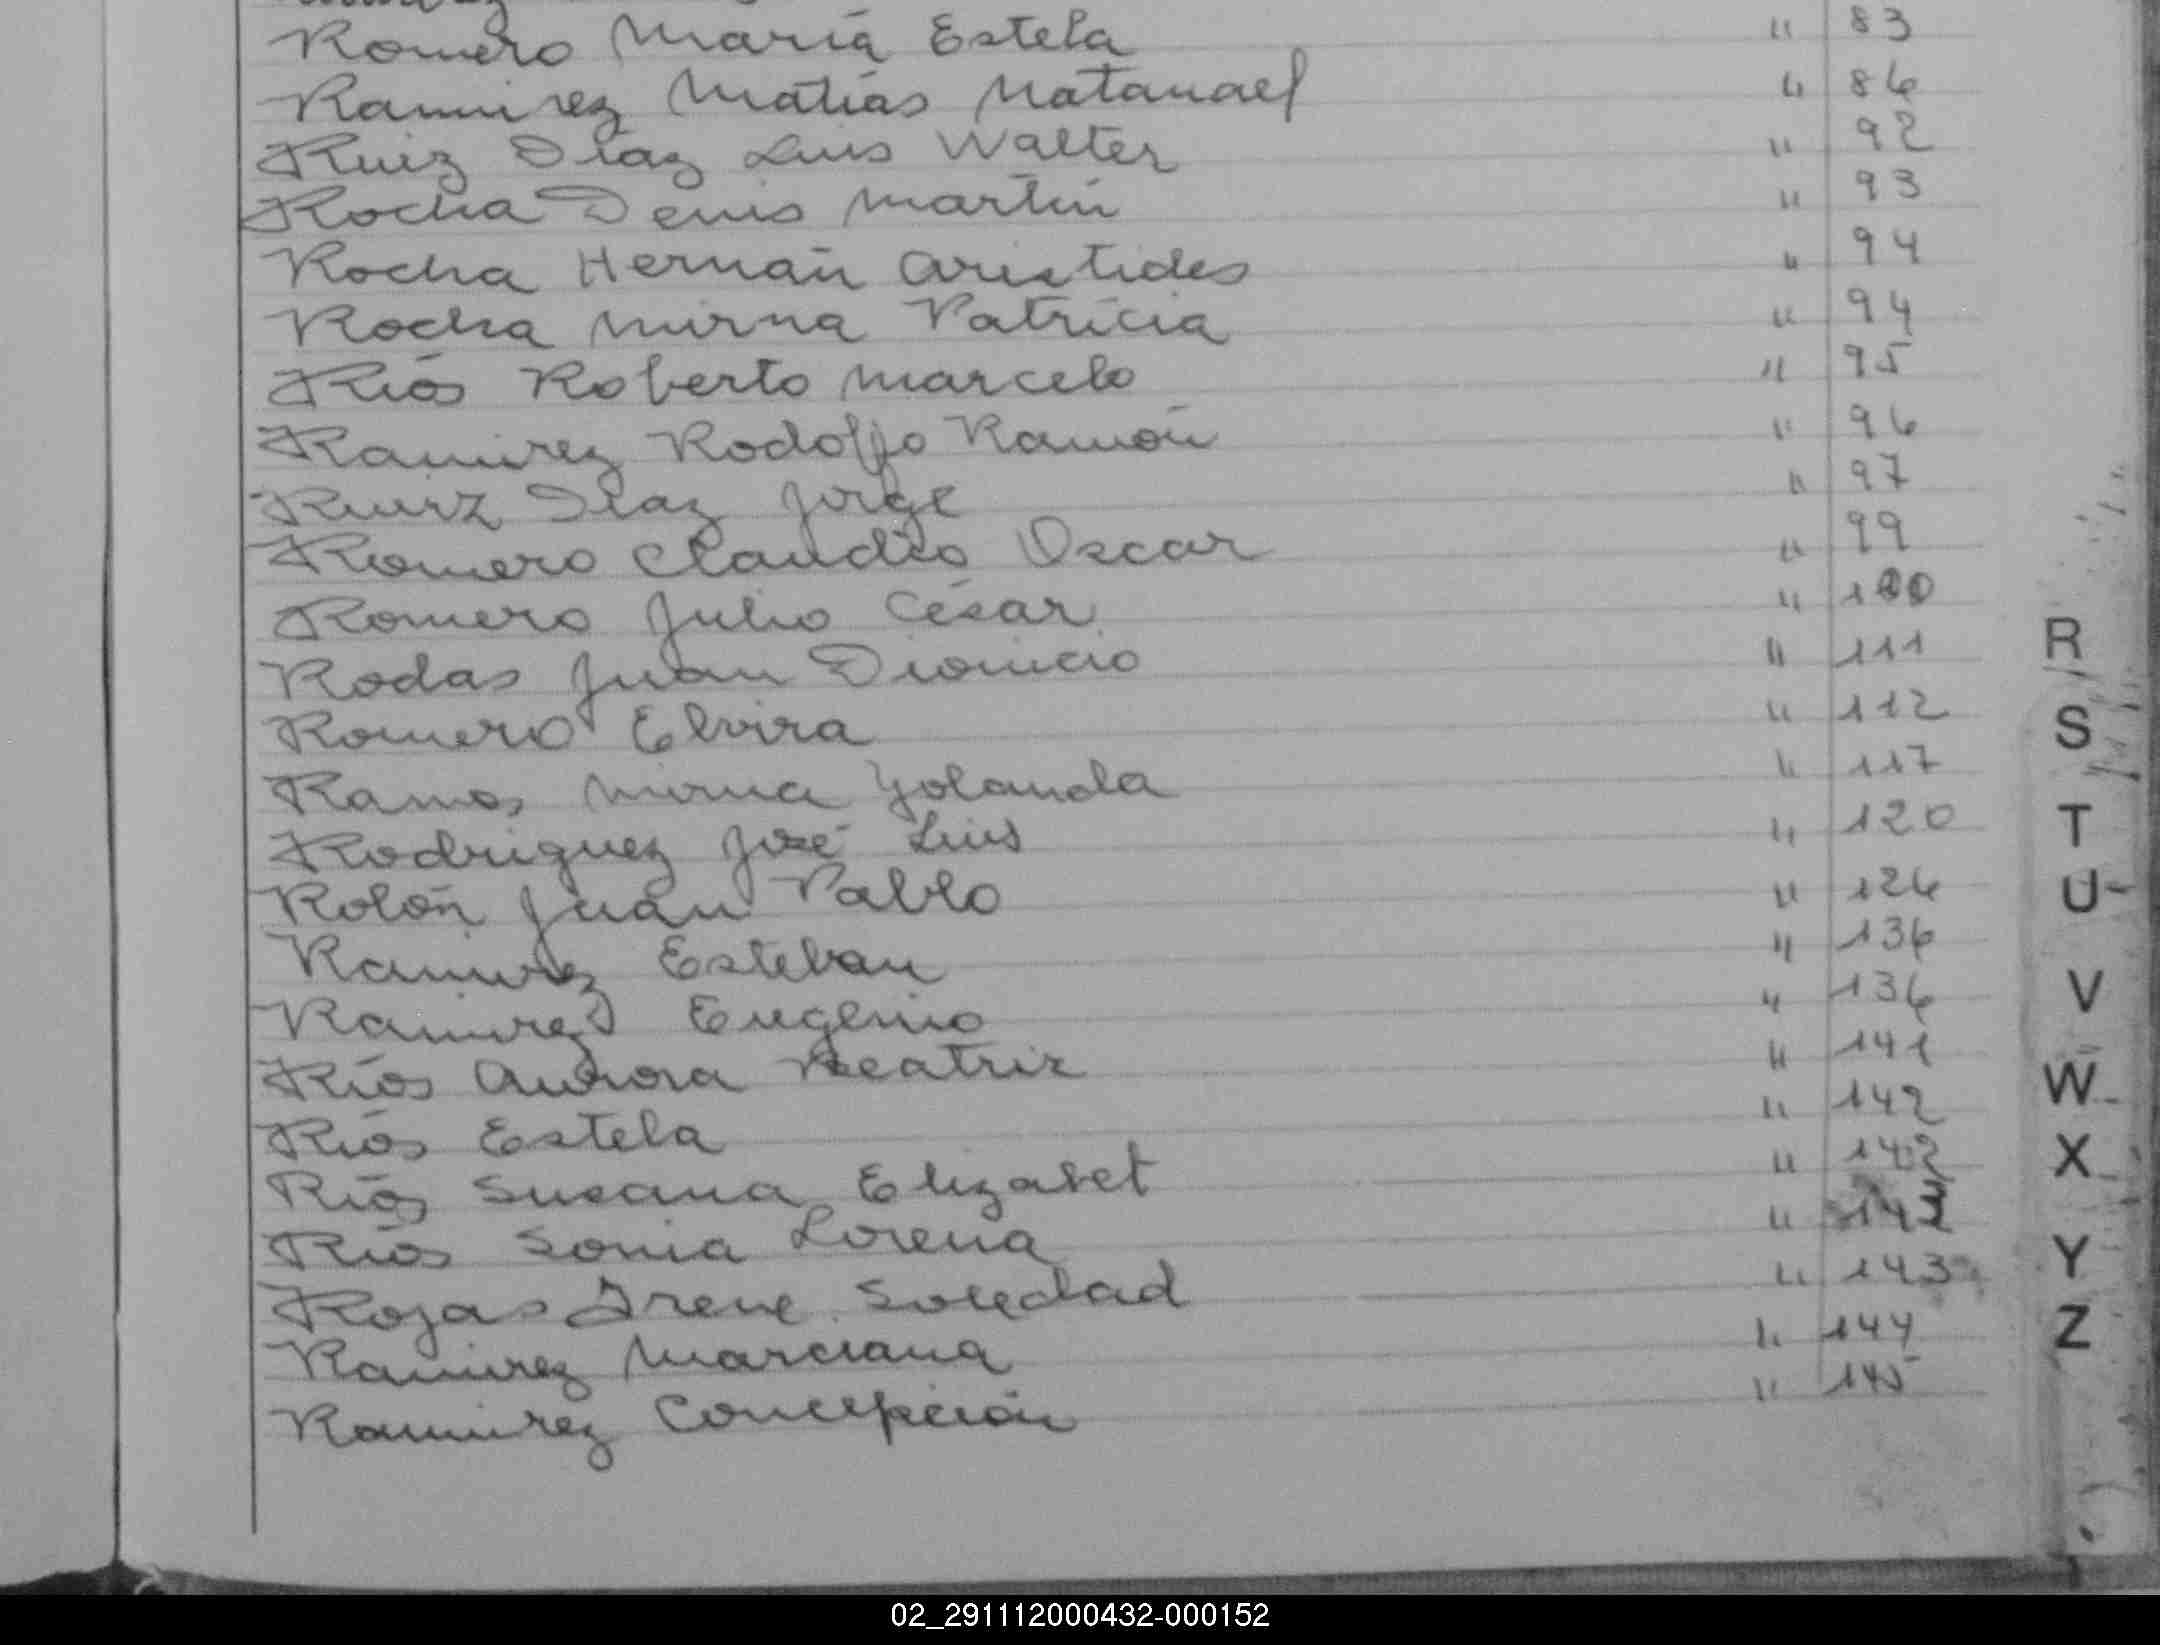 Romero María Estela " 83
Ramirez Matías Natanael " 86
Ruiz Diaz Luis Walter " 92
Rocha Denis Martín " 93
Rocha Hernán Aristides " 94
Rocha Mirna Patricia " 94
Ríos Roberto Marcelo " 95
Ramirez Rodolfo Ramón " 96
Ruirz Diaz Jorge " 97
Romero Claudio Oscar " 99
Romero Julio César " 100
Rodas Juan Dionicio " 111
Romero Elvira " 112
Ramos Mirna Yolanda " 117
Rodriguez José Luis " 120
Rolón Juan Pablo " 126
Ramirez Esteban " 136
Ramirez Eugenio " 136
Ríos Aurora Beatriz " 141
Ríos Estela " 142
Ríos Susana Elizabet " 142
Ríos Sonia Lorena " 143
Rojas Irene Soledad " 143
Ramirez Marciana " 144
Ramirez Concepción " 145
R
S
T
U
V
W
X
Y
Z
02_291112000432-000152